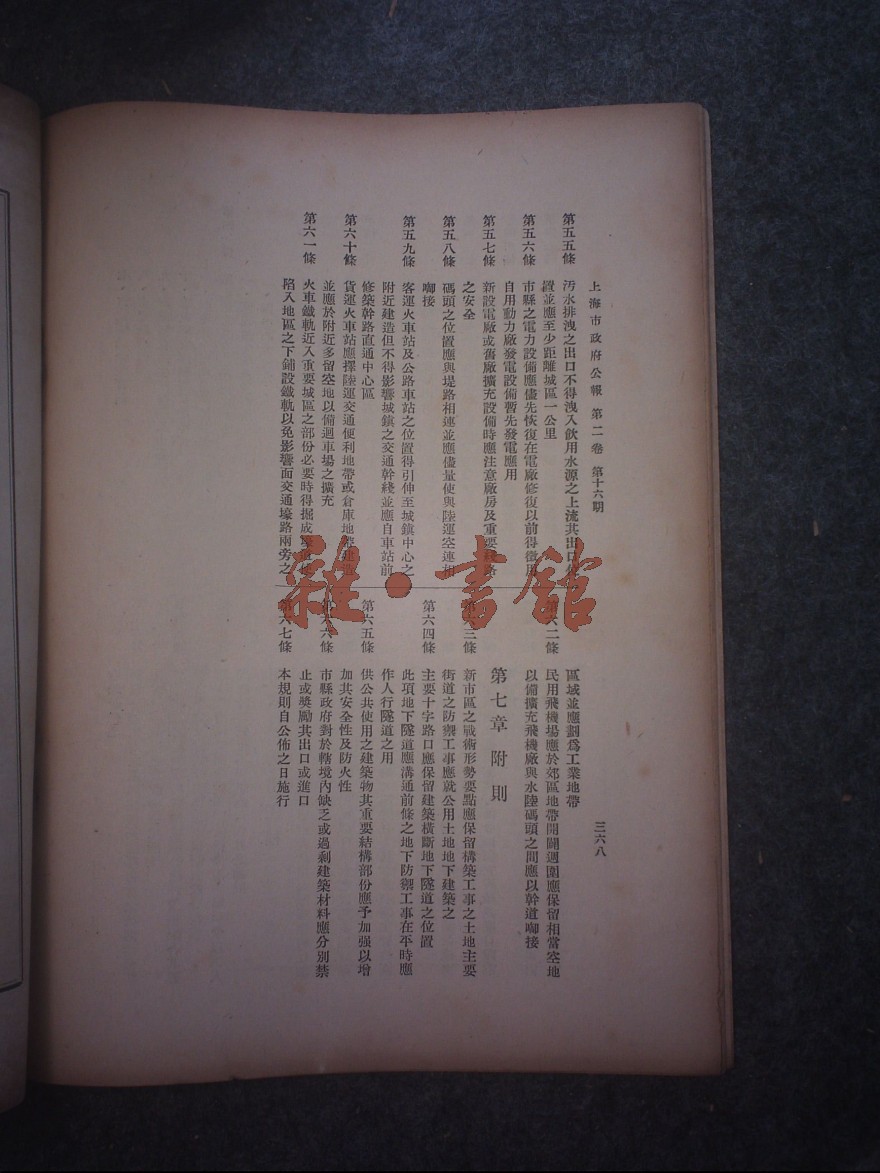 上海市政府公報 第二卷 第十六期
三六八
第五五條 污水排洩之出口不得洩入飲用水源之上流其出口位
置並應至少距離城區一公里
第五六條 市縣之電力設備應儘先恢復在電廠修復以前得徵用
自用動力廠發電設備暫先發電應用
第五七條 新設電廠或舊廠擴充設備時應注意廠房及重要線路
之安全
第五八條 碼頭之位置應與堤路相連並應儘量使與陸運空運相
啣接
第五九條 客運火車站及公路車站之位置得引伸至城鎮中心之
附近建造但不得影響城鎮之交通幹綫並應自車站前
修築幹路直通中心區
第六十條 貨運火車站應擇陸運交通便利地帶或倉庫地帶建造
並應於附近多留空地以備迴車場之擴充
第六一條 火車鐵軌近入重要城區之部份必要時得掘成壕
陷入地區之下鋪設鐵軌以免影響面交通壕路兩旁之
區域並應劃爲工業地帶
第六二條 民用飛機場應於郊區地帶開闢週圍應保留相當空地
以備擴充飛機廠與水陸碼頭之間應以幹道啣接
第七章 附則
第六三條 新市區之戰術形勢要點應保留構築工事之土地主要
街道之防禦工事應就公用土地地下建築之
第六四條 主要十字路口應保留建築橫斷地下隧道之位置
此項地下隧道應溝通前條之地下防禦工事在平時應
作人行隧道之用
第六五條 供公共使用之建築物其重要結構部份應予加强以增
加其安全性及防火性
第六六條 市縣政府對於轄境內缺乏或過剩建築材料應分別禁
止或獎勵其出口或進口
第六七條 本規則自公佈之日施行
雜·書館